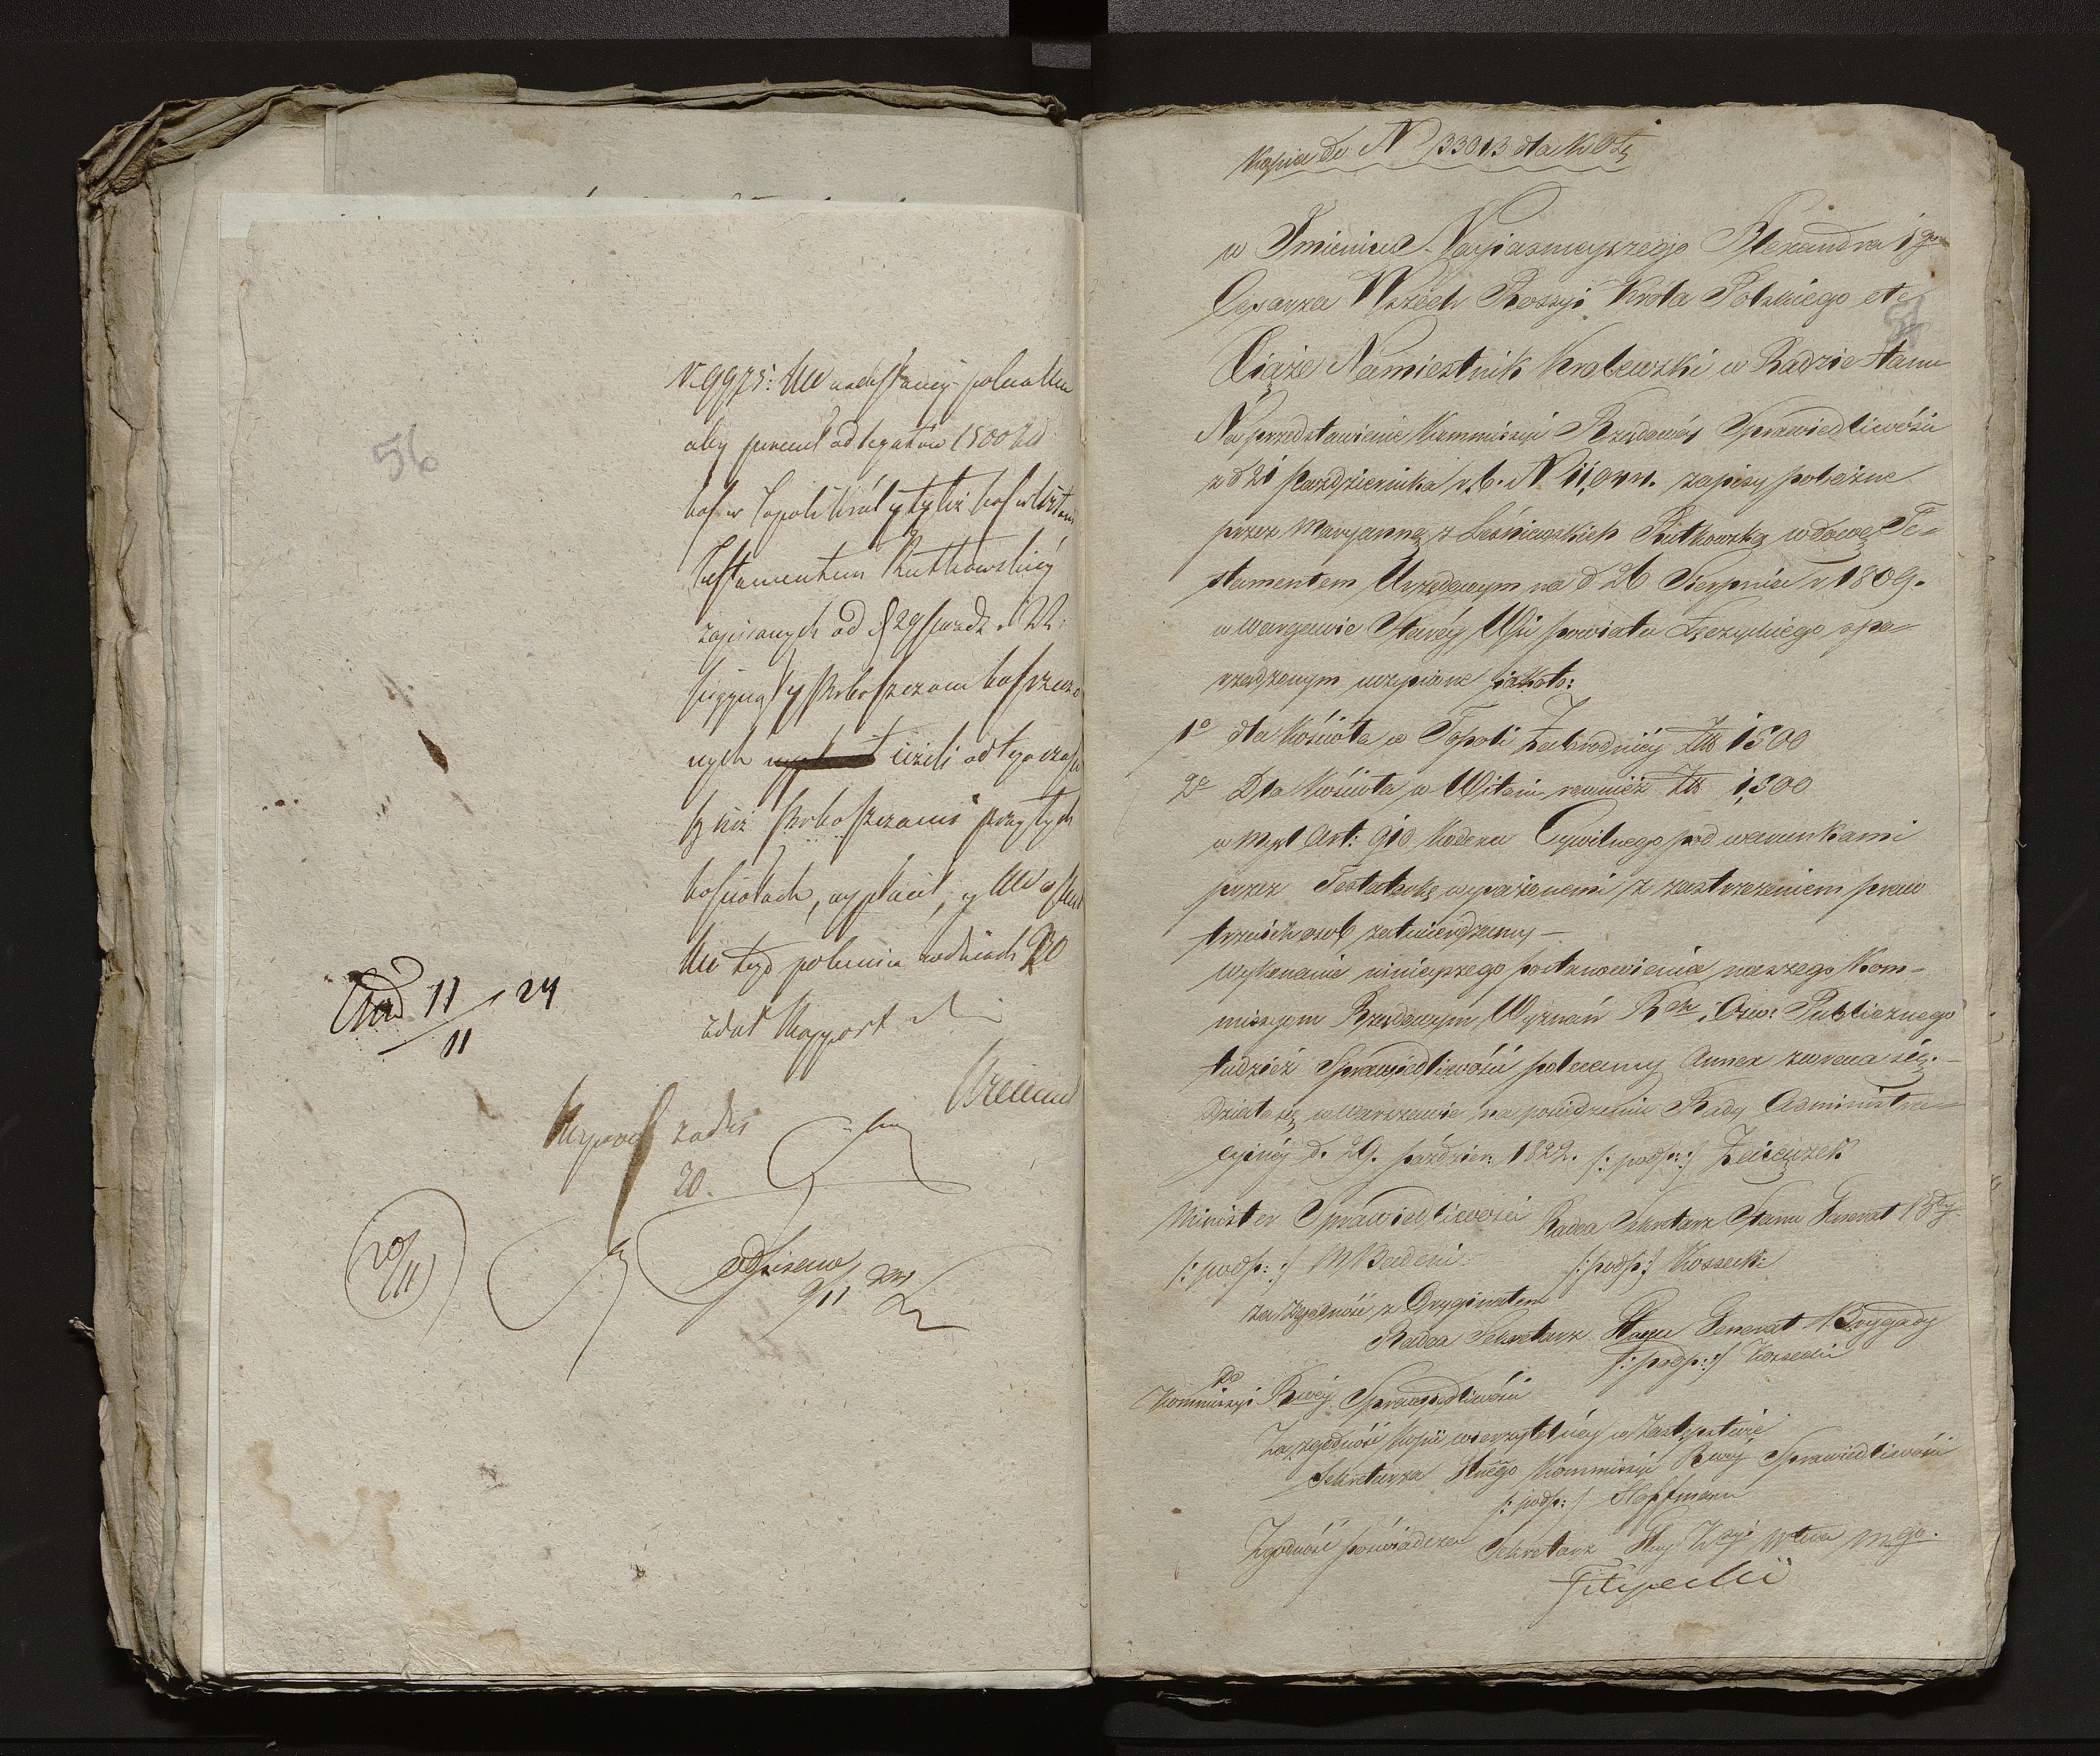 56
N 9975:
aby procent od legatów 1500 zł
koś w Topoli Król y tyluż koś w Witoni
Testamentem Rutkowskiéy
zapisanych od § 29 paźdz. 22
Proboszczom
nych ieżeli od tego czasu
są iuż Proboszczami przy tych
kościołach, wypłacił, y
tego polecenia w dniach 20
zdał Rapport
Exp 11/11 24
za dni
20.
20/11
odpisano
9/11
Kopia do N 33013
w Imieniu Nayiaśnieyszego Alexandra 1go
Cesarza Wszech Rossyi Króla Polskiego etc
Xiąże Namiestnik Krolewski w Radzie Stanu
Na przedstawienie Kommissyi Rządowéy Sprawiedliwości
z d 21 Pazdziernika r. b. N 11,044. zapisy pobożne
przez Maryannę z Leśniewskich Rutkowską wdowę Te-
stamentem Urzędowym na d 26 Sierpnia r 1809.
w Wargawie Staréy Wsi powiatu Łęczyckiego spo-
rządzonym uczynione jakoto:
1o dla Kościoła w Topoli Zł 1500
2o Dla Kościoła w Witoni rownież Zł 1,500
w Myśl Art: 910 Kodexu Cywilnego pod warunkami
przez Testatorkę wyrażonemi z zastrzeżeniem praw
trzecich osob zatwierdzamy —
Wykonanie ninieyszego postanowienia naszego Kom-
missyom Rządowym Wyznań Rch i Osw: Publicznego
tudzież Sprawiedliwości polecamy Annex zwraca się. —
Działo się w Warszawie na posiedzeniu Rady Administra-
cyinéy d. 29. paździer: 1822. /: podp: :/ Zaiączek
Minister Sprawiedliwości Radca Sekretarz Stanu Generał Bdy
/: podp: :/ M Badeni /: podp :/ Kossecki
za zgodność z Oryginałem
Radca Sekretarz Stanu Generał Brygady
/: podp: :/ Kossecki
Do
Kommissyi Rwéy Sprawiedliwości
Za zgodność Kopii wierzytelnéy w Zastępstwie
Sekretarza Kommissyi Rwéy Sprawiedliwości
/: podp: / Hoffmann
Zgodność poświadcza Sekretarz Wtwa Mgo.
Filipecki